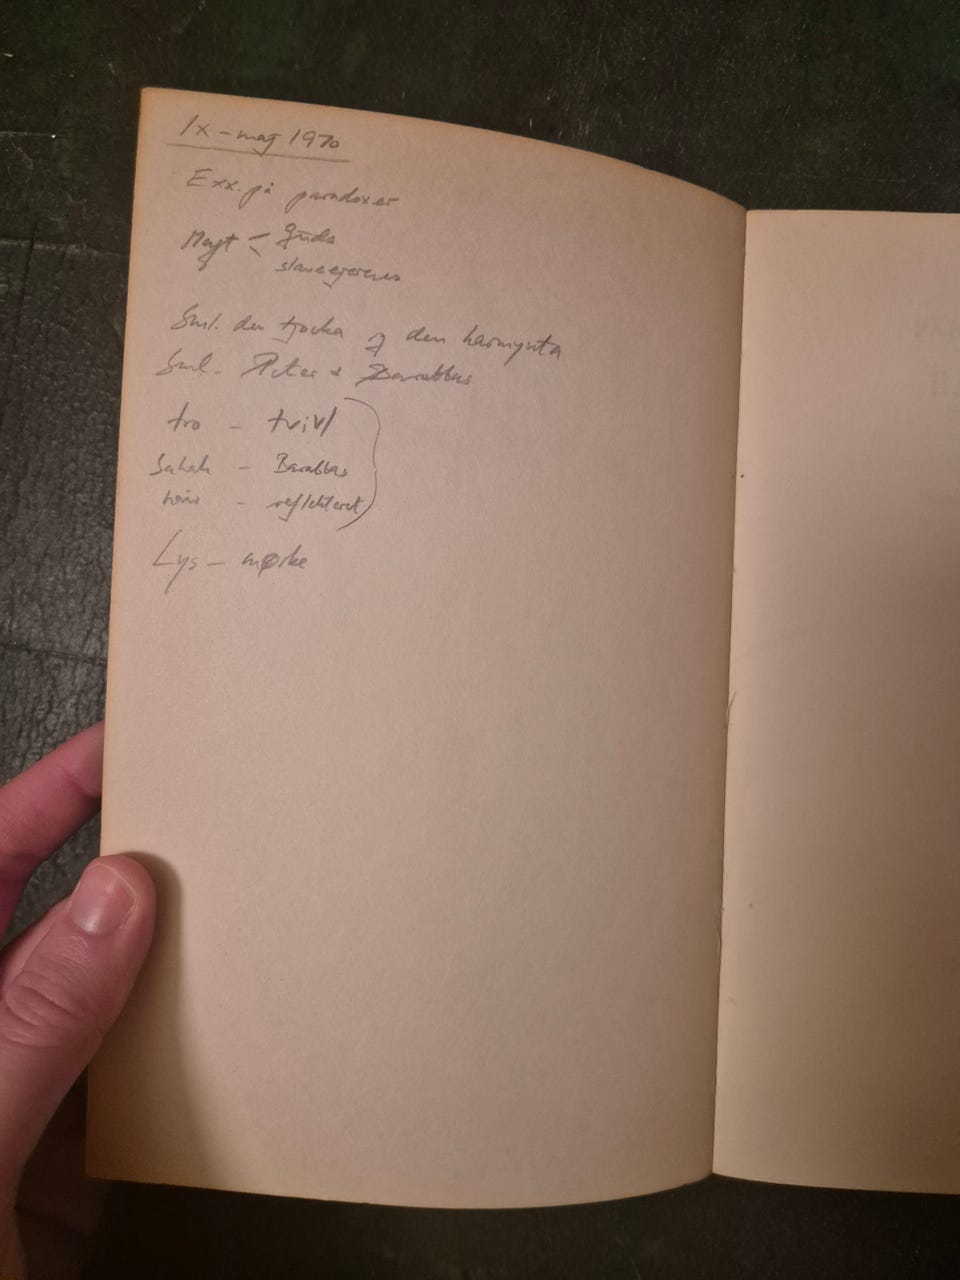 1x - maj 1970
Exx. på paradoxer
Magt - Guds
slaveejerens
Sml. den tjocka og den harmynta
Sml. Peter & Barabbas
tro - tvivl
Sahak - Barabbas
naiv - reflekteret
Lys - mørke